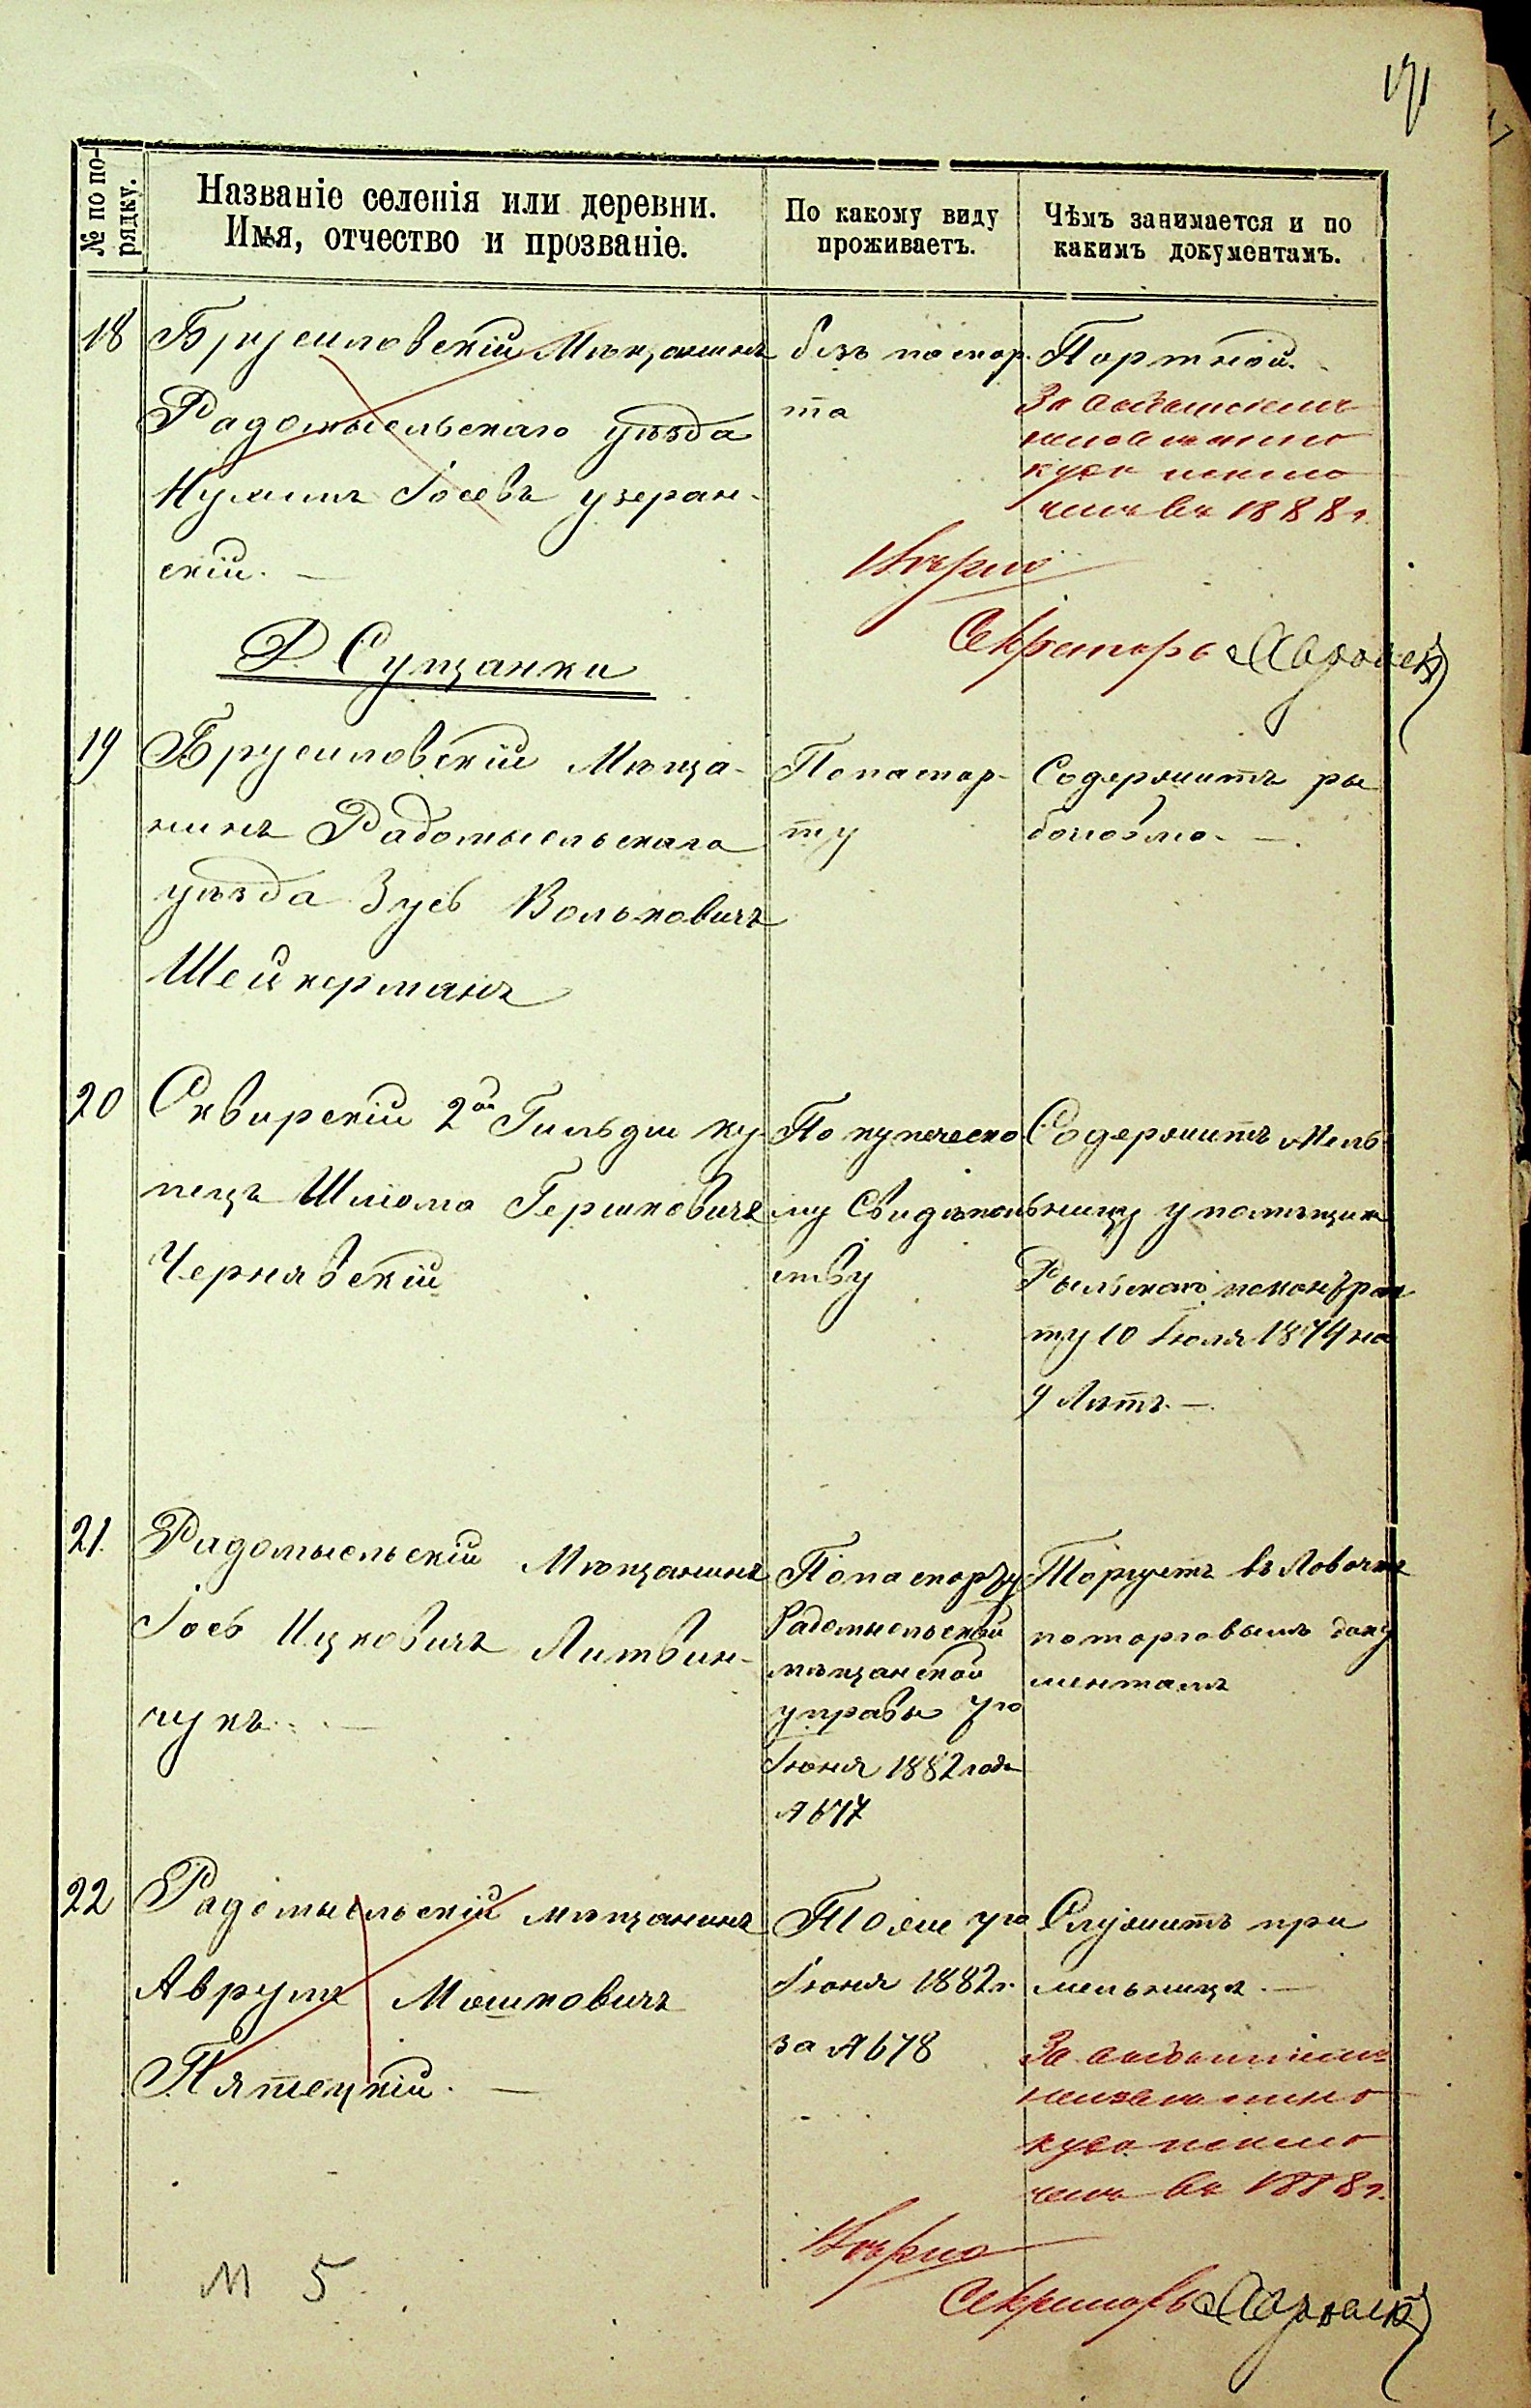 171
№ по по-
рядку.
Названіе селенія или деревни.
Имя, отчество и прозваніе.
По какому виду
проживаетъ.
Чѣмъ занимается и по
какимъ документамъ.
18
Брусиловскій Мѣщанинъ
Радомысльскаго уѣзда
Іосевъ
скій. —
безъ паспор-
та
Портной.
За
исклю
ченъ въ 1888 г.
Вѣрно
Секретарь
Д Сущанки
19
Брусиловскій Мѣща-
нинъ Радомысльскаго
уѣзда Зусь Вольковичъ
Шейнерманъ
По паспор-
ту
Содержитъ ры
20
Сквирскій 2ой Гильдіи ку-
пецъ Шліома Гершковичъ
Чернявскій
По купеческо
му Свидѣтель
ству
Содержитъ Мель-
ницу у помѣщика
Рыльскаго по контрак
ту 10 Іюля 1874 на
9 Лѣтъ. —
21.
Радомысльскій Мѣщанинъ
Іось Ицковичъ Литвин-
чукъ. —
По паспорту
Радомысльской
мѣщанской
управы 7го
Іюня 1882 года
№ 677
Торгуетъ въ Лавочкѣ
по торговымъ доку
ментамъ
22
Радомысльскій мѣщанинъ
Аврумъ Мошковичъ
Пятецкій. —
Тоже 7го
Іюня 1882 г.
за № 678
Служитъ при
мельницѣ. —
За
исклю
ченъ въ 1888 г.
Вѣрно
Секретарь
М 5